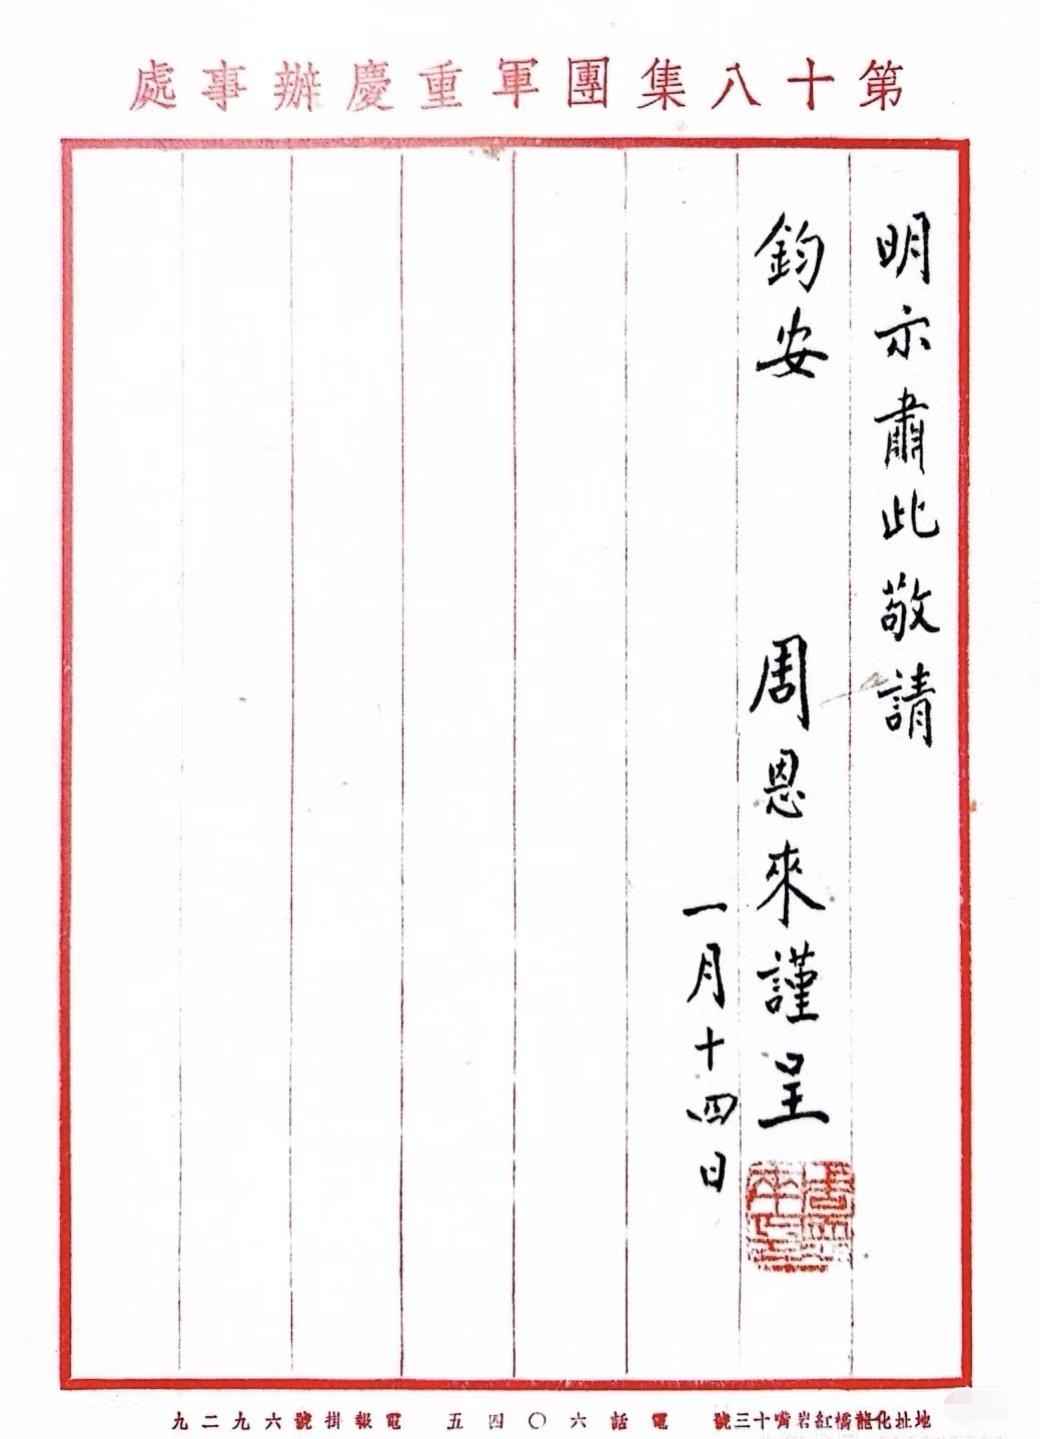 第十八集團軍重慶辦事處
明示肅此敬請
鈞安 周恩來謹呈
一月十四日
地址化龍橋紅岩嘴十三號 電話六〇四五 電報掛號六九二九